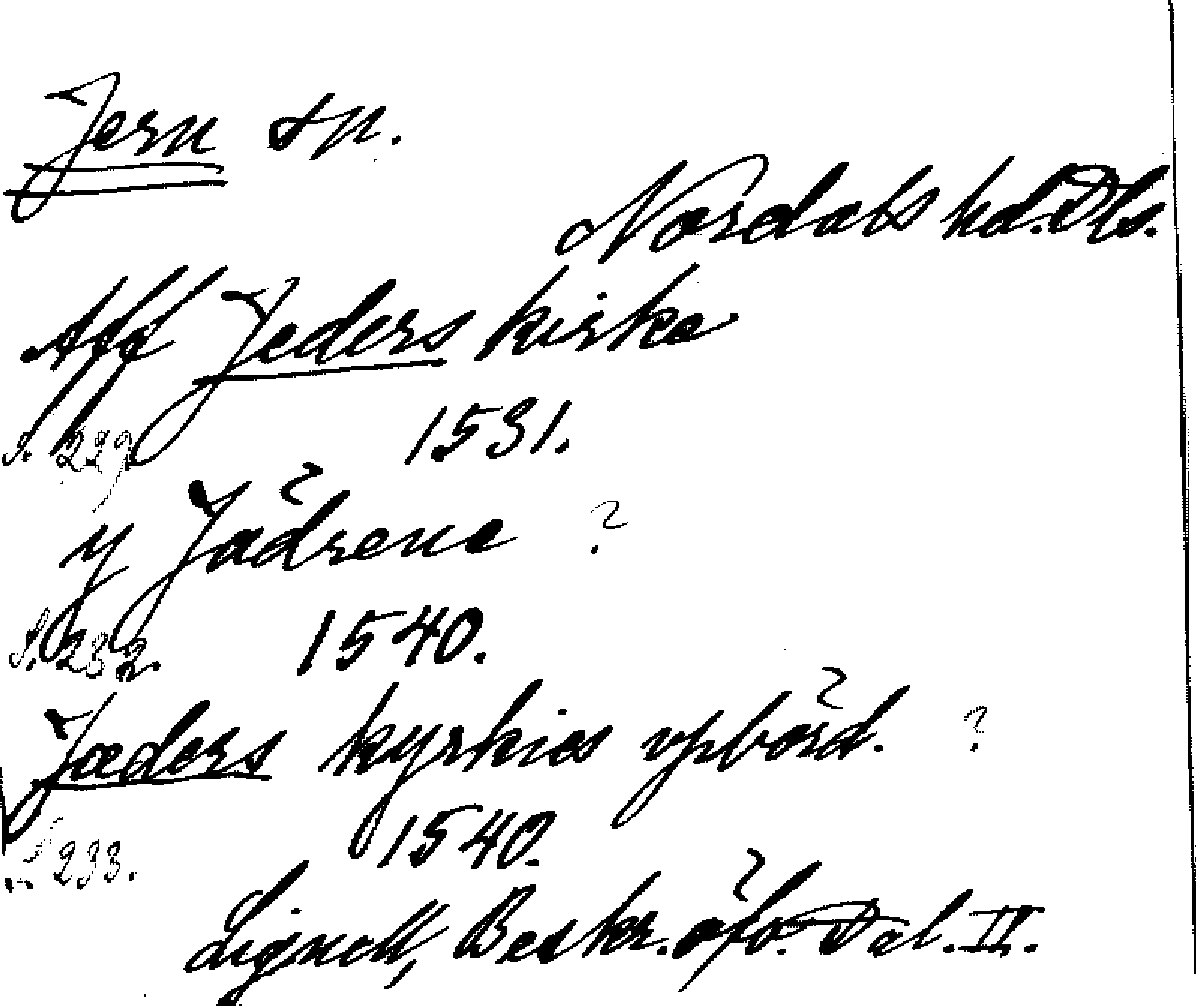 Jern sn.
Nordals hd. Dls.
Aff Jeders kirke
S. 229 1531.
y Jädrene ?
S. 232. 1540.
Jæders kyrkies vpbörd. ?
S. 233. 1540.
Lignell, Beskr. öfv. Dal. II.